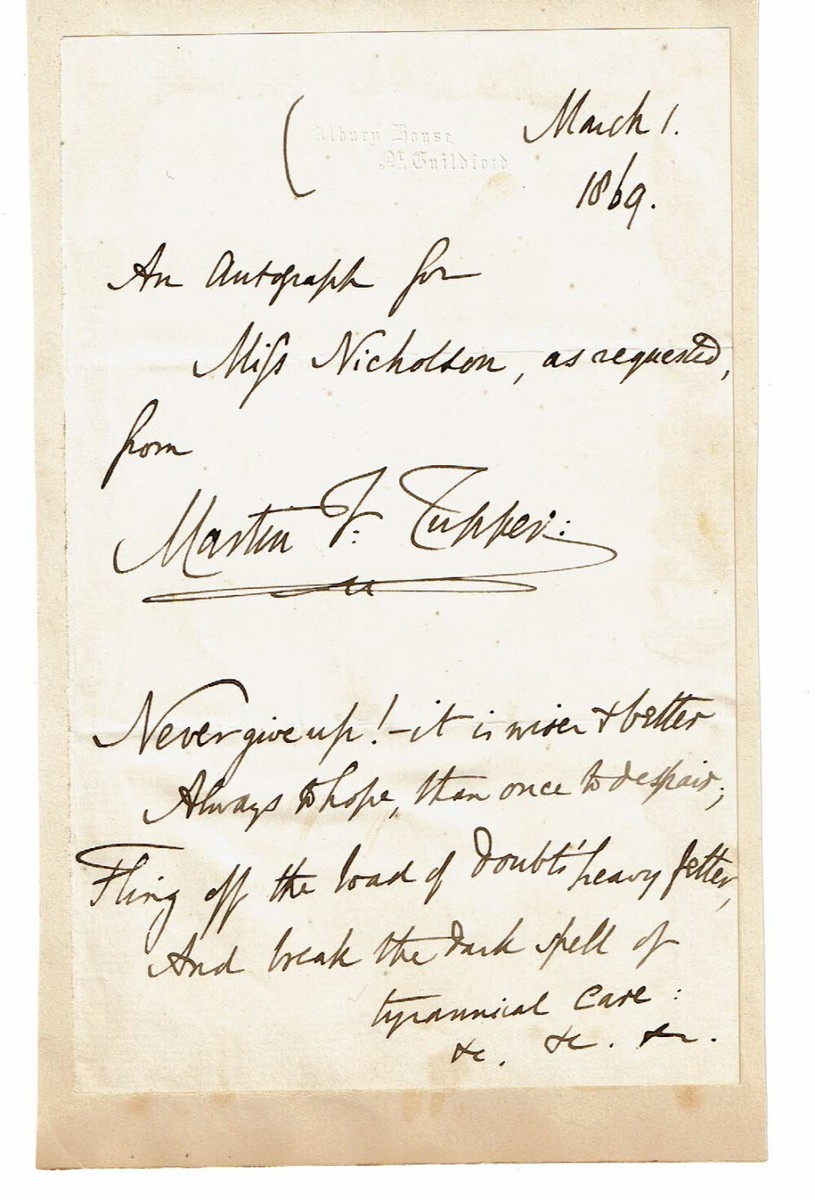 Albury House,
Nr. Guildford
March 1.
1869.
An Autograph for
Miſs Nicholson, as requested,
from
Martin F. Tupper:
Never give up! – it is wiser & better
Always to hope, than once to despair;
Fling off the load of Doubt's heavy fetter,
And break the dark spell of
tyrannical Care:
&c. &c. &c.